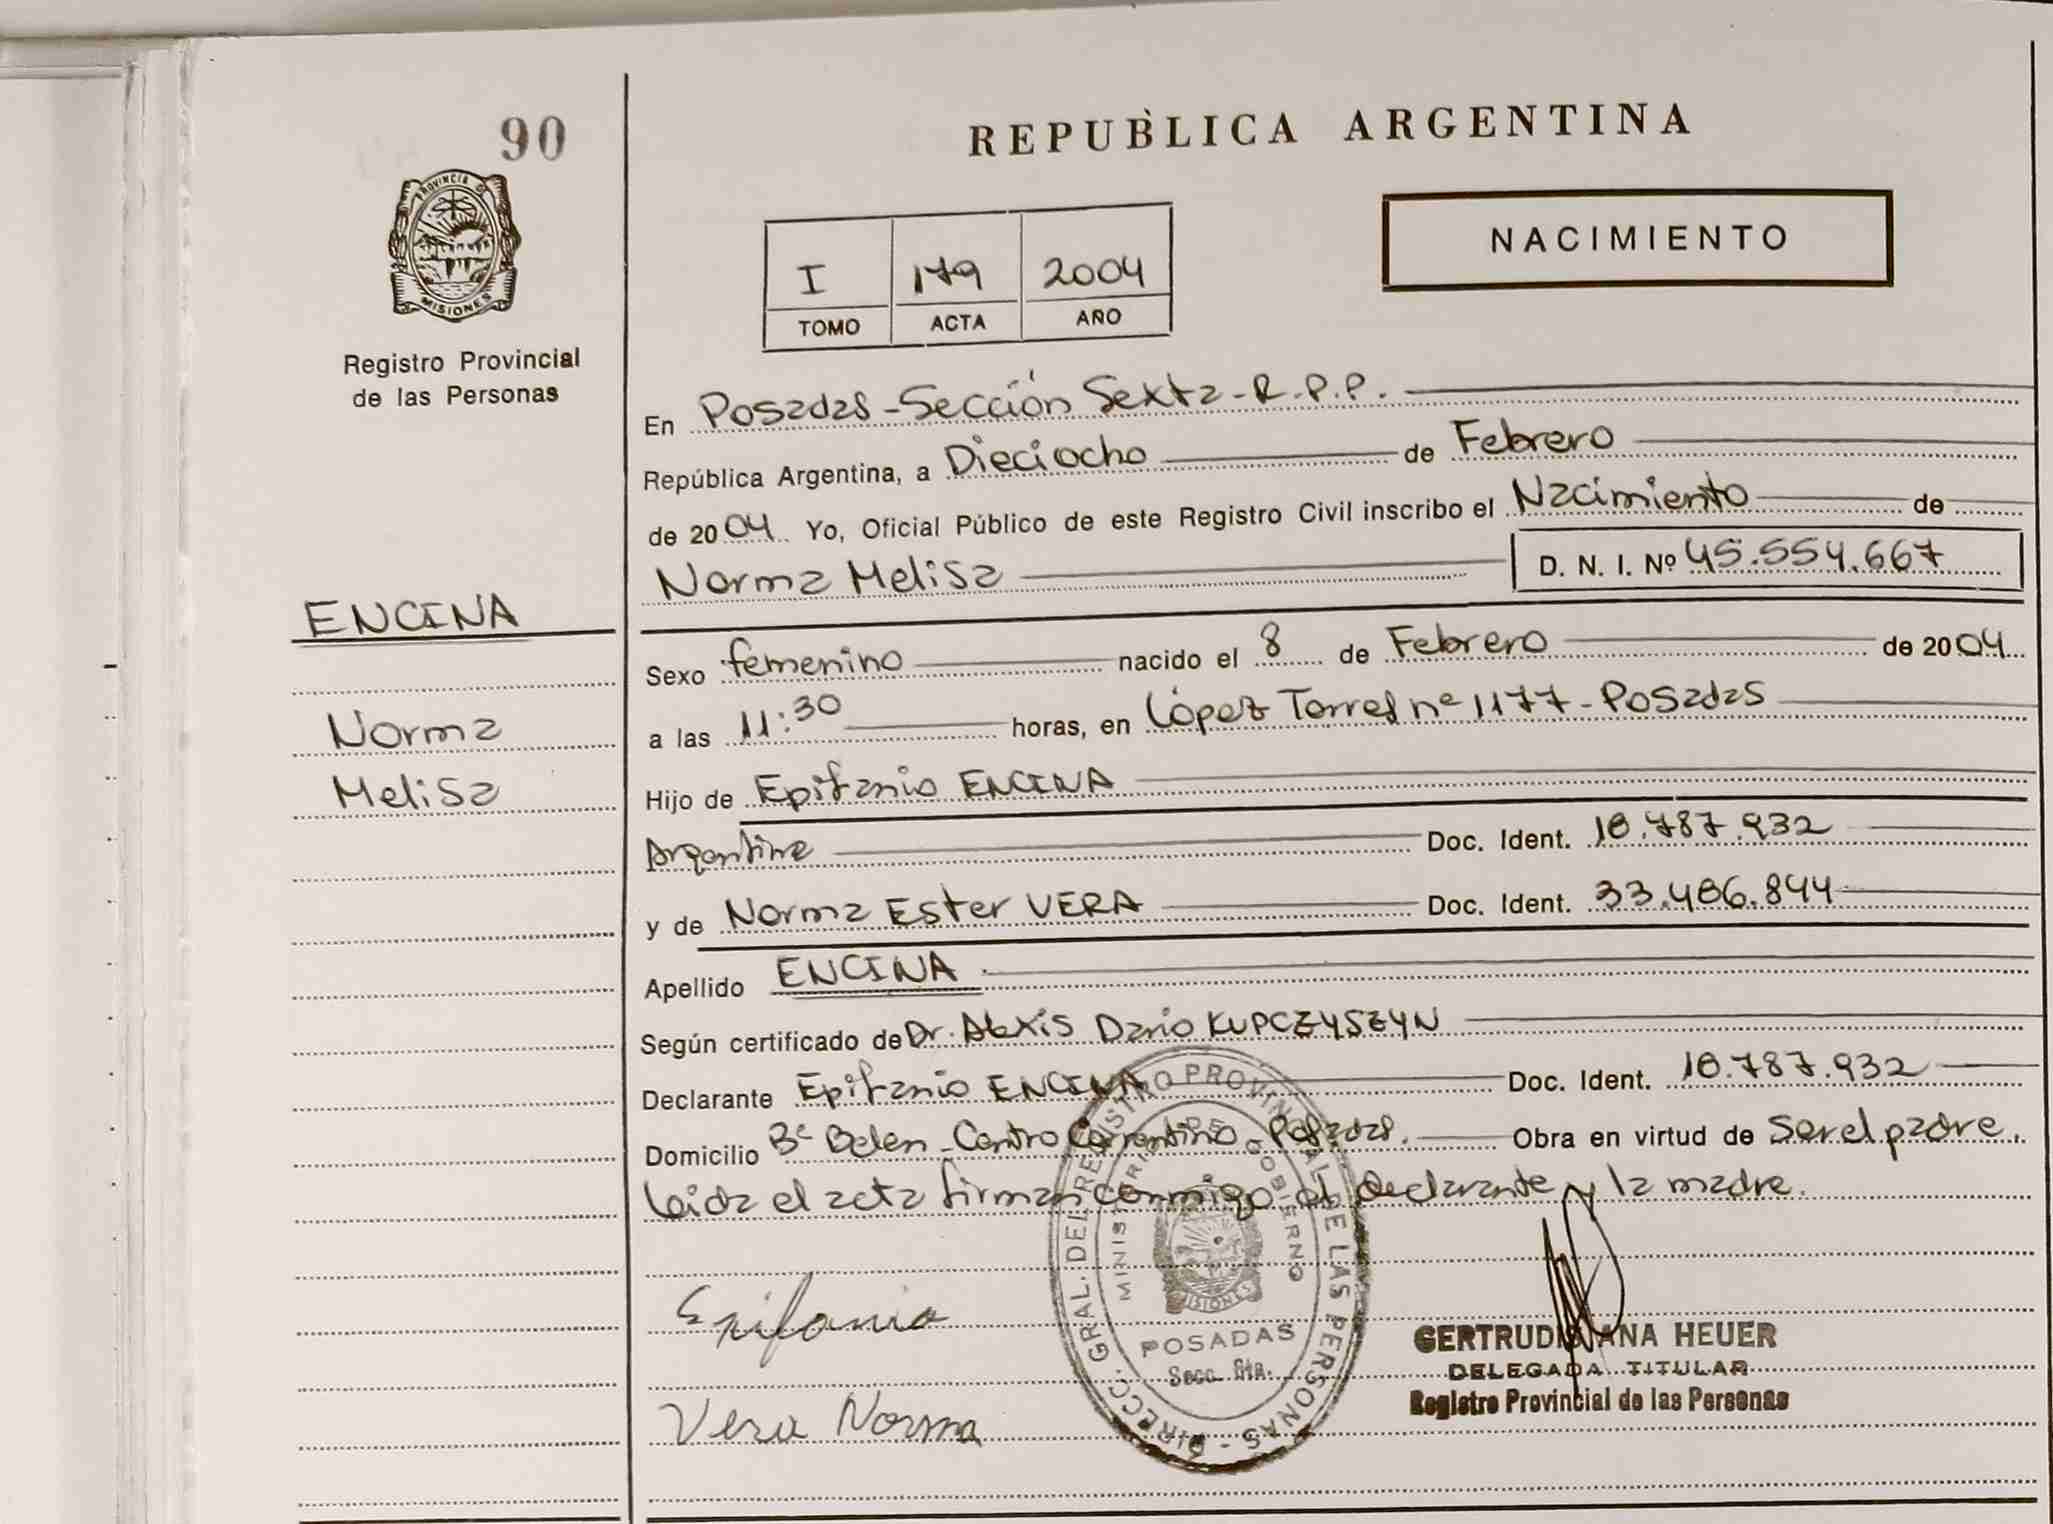 90
PROVINCIA DE
MISIONES
Registro Provincial
de las Personas
REPUBLICA ARGENTINA
NACIMIENTO
I 179 2004
TOMO ACTA AÑO
En Posadas - Sección Sexta - R.P.P.
República Argentina, a Dieciocho de Febrero
de 2004 Yo, Oficial Público de este Registro Civil inscribo el Nacimiento de
Norma Melisa D. N. I. Nº 45.554.667
ENCINA
Norma
Melisa
Sexo femenino nacido el 8 de Febrero de 2004
a las 11:30 horas, en López Torres nº 1177 - Posadas
Hijo de Epifanio ENCINA
Argentina Doc. Ident. 18.787.932
y de Norma Ester VERA Doc. Ident. 33.486.844
Apellido ENCINA
Según certificado de Dr. Alexis Dario KUPCZYSZYN
Declarante Epifanio ENCINA Doc. Ident. 18.787.932
Domicilio Bº Belen - Centro Correntino - Posadas. Obra en virtud de Ser el padre.
Leida el acta firman conmigo el declarante y la madre.
Epifanio
Vera Norma
DIRECC. GRAL. DEL REGISTRO PROVINCIAL DE LAS PERSONAS
MINISTERIO DE GOBIERNO
MISIONES
POSADAS
Secc. 6ta.
GERTRUDIS ANA HEUER
DELEGADA TITULAR
Registro Provincial de las Personas